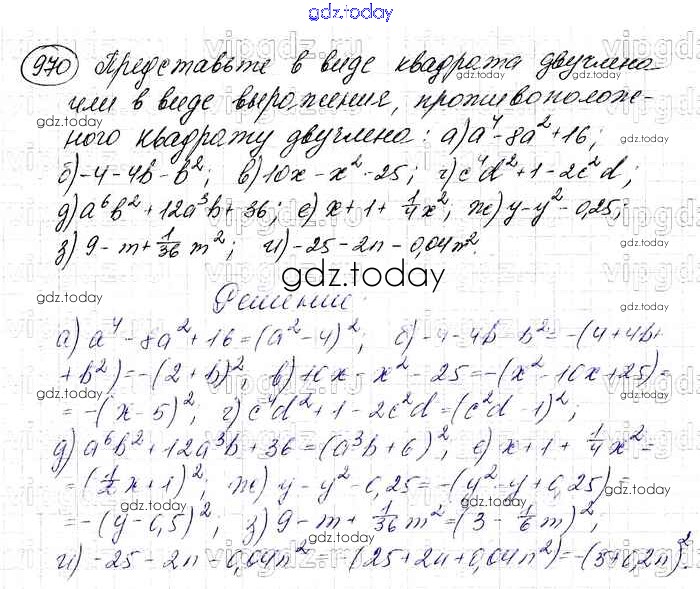 gdz.today
970 Представьте в виде квадрата двучлена
или в виде выражения, противополож-
ного квадрату двучлена: а) a⁴ - 8a² + 16;
б) -4 - 4b - b²; в) 10x - x² - 25; г) c⁴d² + 1 - 2c²d;
д) a⁶b² + 12a³b + 36; е) x + 1 + 1/4 x²; ж) y - y² - 0,25;
з) 9 - m + 1/36 m²; и) -25 - 2n - 0,04n².
gdz.today
Решение:
а) a⁴ - 8a² + 16 = (a² - 4)²; б) -4 - 4b - b² = -(4 + 4b +
+ b²) = -(2 + b)²; в) +10x - x² - 25 = -(x² - 10x + 25) =
= -(x - 5)²; г) c⁴d² + 1 - 2c²d = (c²d - 1)²;
д) a⁶b² + 12a³b + 36 = (a³b + 6)²; е) x + 1 + 1/4 x² =
= (1/2 x + 1)²; ж) y - y² - 0,25 = -(y² - y + 0,25) =
= -(y - 0,5)²; з) 9 - m + 1/36 m² = (3 - 1/6 m)²;
и) -25 - 2n - 0,04n² = -(25 + 2n + 0,04n²) = -(5 + 0,2n)².
gdz.today